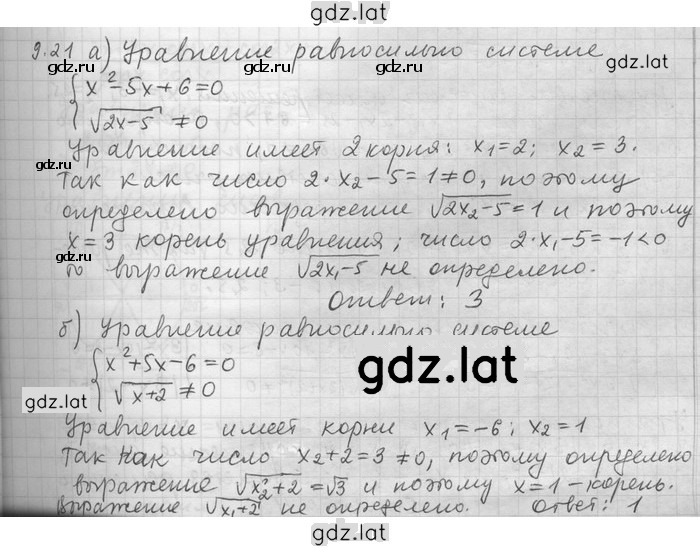 gdz.lat
9.21 а) Уравнение равносильно системе
gdz.lat gdz.lat gdz.lat
{ x² - 5x + 6 = 0
{ √(2x-5) ≠ 0
Уравнение имеет 2 корня: x₁ = 2; x₂ = 3.
Так как число 2·x₂ - 5 = 1 ≠ 0, поэтому
определено выражение √(2x₂-5) = 1 и поэтому
x = 3 корень уравнения; число 2·x₁ - 5 = -1 < 0
gdz.lat gdz.lat gdz.lat
то выражение √(2x₁-5) не определено.
Ответ: 3
б) Уравнение равносильно системе
{ x² + 5x - 6 = 0
{ √(x+2) ≠ 0
gdz.lat
gdz.lat
Уравнение имеет корни x₁ = -6; x₂ = 1
Так как число x₂ + 2 = 3 ≠ 0, поэтому определено
выражение √(x₂+2) = √3 и поэтому x = 1 - корень.
выражение √(x₁+2) не определено. Ответ: 1
gdz.lat gdz.lat gdz.lat
gdz.lat